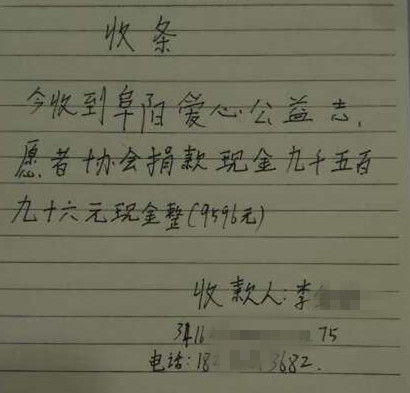 收条
今收到阜阳爱心公益志,
愿者协会捐款现金九千五百
九十六元现金整(9596元)
收款人:李
3416 75
电话:18 3682.